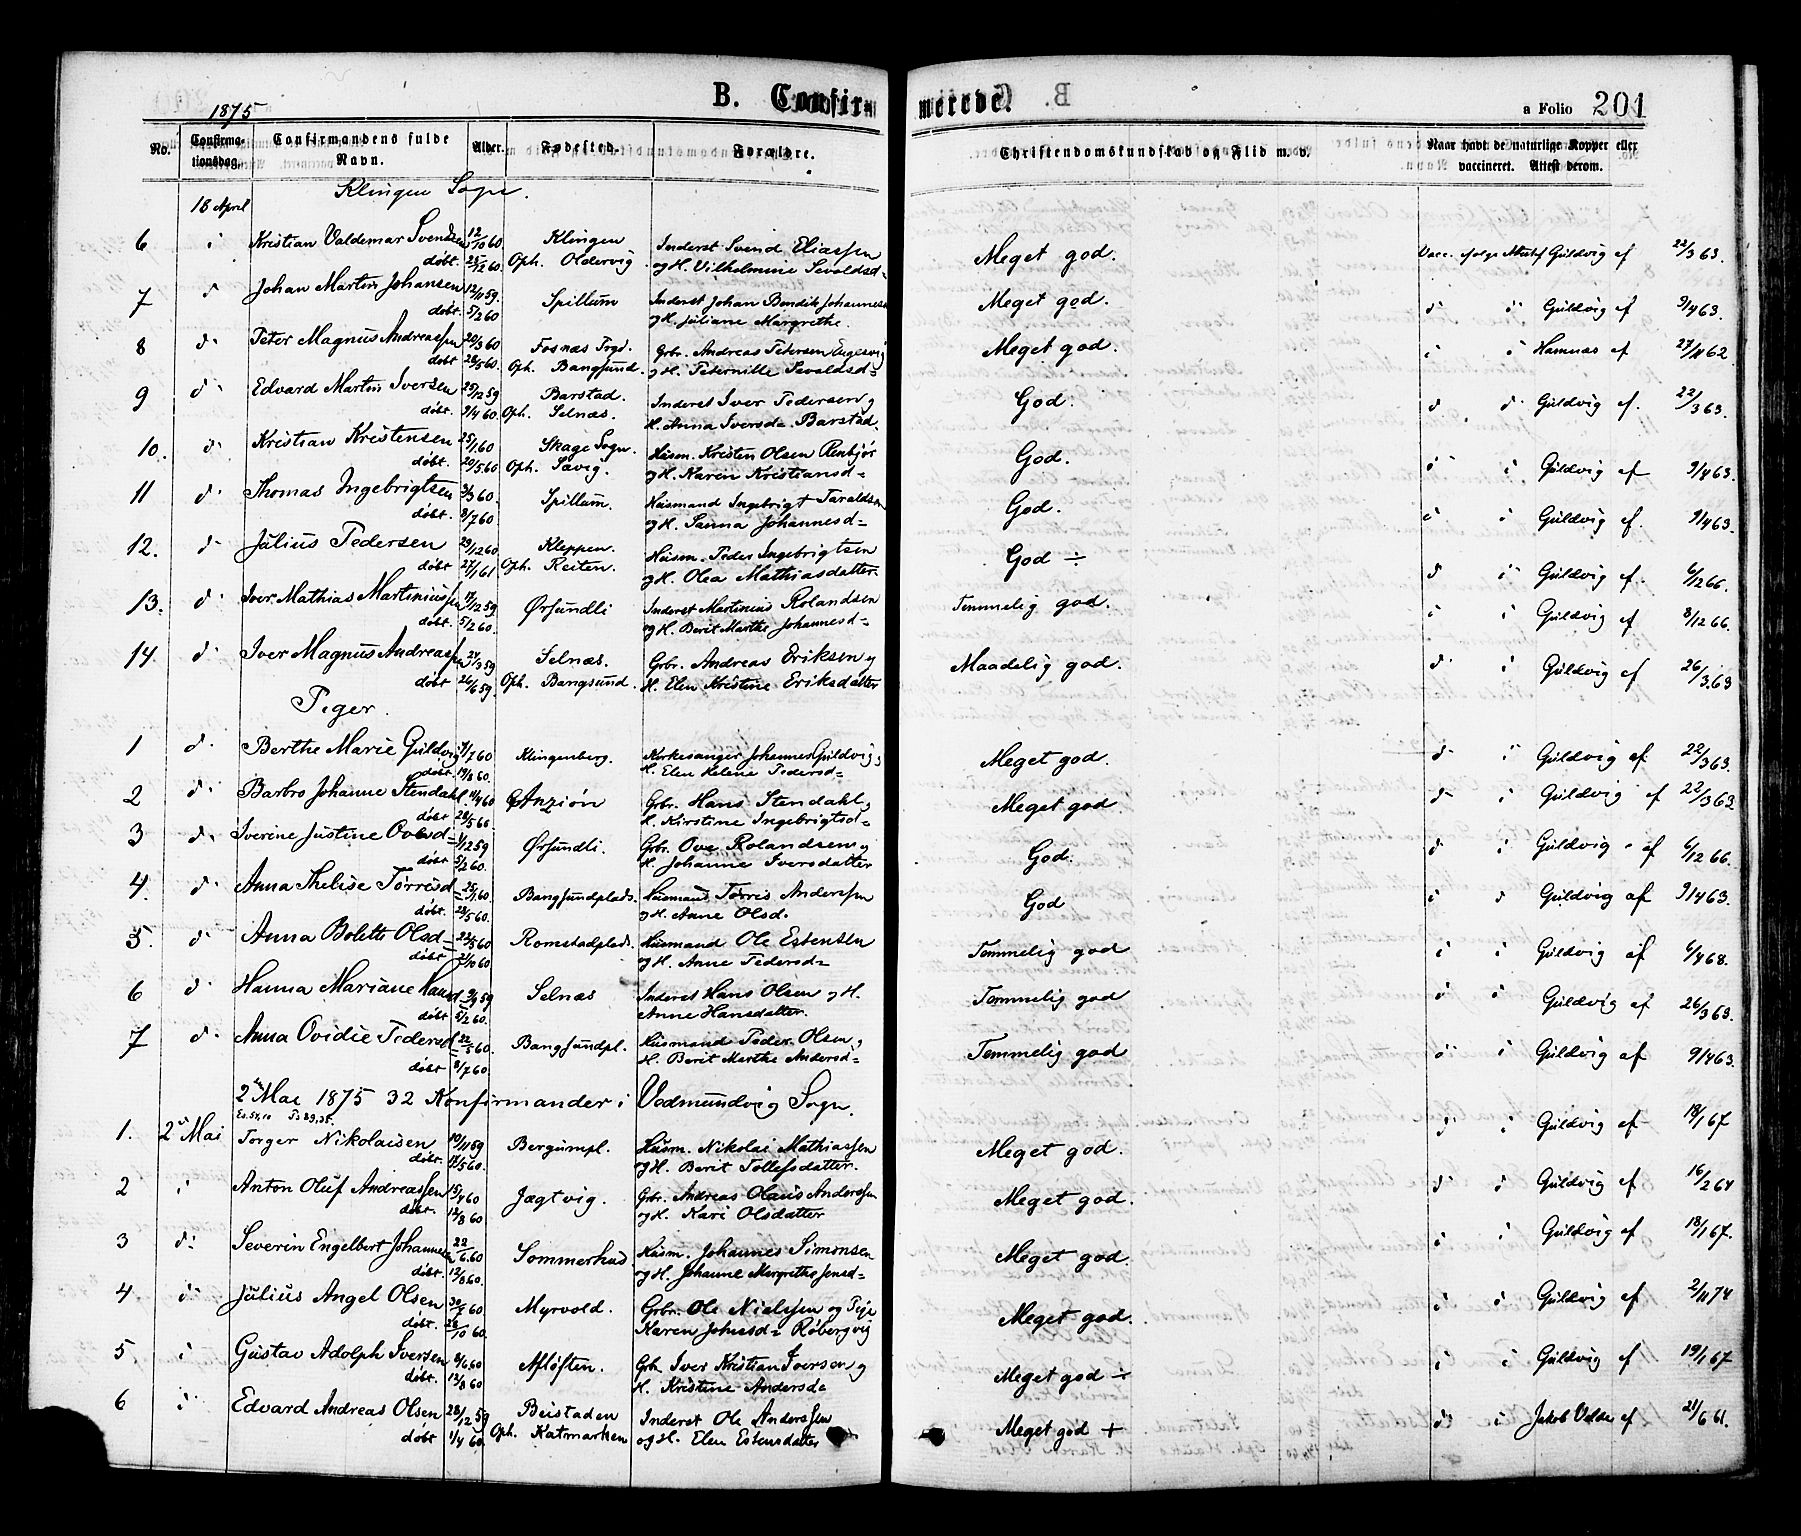 1875
B. Confirmerede.
a Folio 201
No. Confirmationsdag. Confirmandens fulde Navn. Alder. Fødested. Forældre. Christendomskundskab og Flid m. v. Naar havt de naturlige Kopper eller vaccineret. Attest derom.
Klingen Sogn.
18 April
6 i Kristian Valdemar Svendsen 12/10 60 Klingen Inderst Svend Eliassen Meget god. Vacc. efolge Attest Guldvig af 22/3 63.
døbt. 25/12 60. Oph. Oldervig. og H. Vilhelmine Sevaldsd=
7 d Johan Martin Johansen 12/11 59. Spillum Inderst Johan Bendik Johanness Meget god. d i Guldvig af 9/4 63.
døbt 5/2 60 og H. Juliane Margrethe.
8 d Peter Magnus Andreassen 20/3 60 Fosnæs Prgd. Grb. Andreas Petersen Engesvig Meget god. i i Hamnæs af 27/11 62
døbt 28/5 60. Oph. Bangsund. og H. Peternille Sevaldsd=
9 d Edvard Martin Iversen 25/12 59 Barstad. Inderst Iver Pedersen og God. d d Guldvig af. 22/3 63.
døbt. 9/4 60. Oph. Selnæs. H. Anna Iversd= Barstad.
10. d Kristian Kristensen 25/1 60 Skage Sogn. Husm. Kristen Olsen Renbjør God. i i Guldvig af 9/4 63.
døbt. 20/5 60 Oph. Savig. og H. Karen Kristiansd=
11 d Thomas Ingebrigtsen 3/3 60 Spillum. Husmand Ingebrigt Taraldsen God. i i Guldvig af. 9/4 63.
døbt. 8/7 60 og H. Sanna Johannesd=
12. d Julius Pedersen 29/12 60 Kleppen. Husm. Peder Ingebrigtsen God ÷ d i Guldvig af. 6/12 66.
døbt 27/1 61 Oph. Reiten. og H. Olea Mathiasdatter
13. d Iver Mathias Martiniussen 17/12 59 Ørsundli Inderst Martinius Rolandsen Temmelig god. i i Guldvig af 8/12 66.
døbt. 5/2 60. og H. Berit Marthe Johannesd=
14. d Iver Magnus Andreassen 24/3 59 Selnæs. Grb. Andreas Eriksen og Maadelig god. d i Guldvig af 26/3 63
døbt 26/6 59. Oph. Bangsund. H. Elen Kristine Eriksdatter
Piger.
1 d. Berthe Marie Guldvig 7/7 60 Klingenberg. Kirkesanger Johannes Guldvig, Meget god. d i Guldvig af 22/3 63.
døbt. 19/8 60. H. Elen Helene Pedersd=
2 d Barbro Johanne Stendahl. 11/4 60 Anzion Grb. Hans Stendahl, Meget god d i Guldvig af 22/3 63
døbt 28/5 60. H. Kirstine Ingebrigtsd=
3 d. Iverine Justine Ovesd= 3/12 59 Ørsundli. Grb. Ove Rolandsen og God. d i Guldvig af 6/12 66.
døbt 5/2 60. H. Johanne Iversdatter
4. d Anna Thelise Tørrisd= 25/1 60. Bangsundplads. Husmand Tørris Anderssen God i d Guldvig af 9/4 63.
døbt. 28/5 60. og H. Anne Olsd.
5. d Anna Bolette Olsd= 22/5 60 Romstadplads. Husmand Ole Estensen Temmelig god i i Guldvig af 6/4 68.
døbt 21/10 60 og H. Anne Pedersd=
6 d Hanna Mariane Hansd 9/9 59 Selnæs Inderst Hans Olsen og H. Temmelig god d i Guldvig af 26/3 63.
døbt 5/2 60. Anne Hansdatter.
7 d. Anna Ovidie Pedersd 22/5 60. Bangsundpl. Husmand Peder Olsen, Temmelig god d i Guldvig af 9/4 63.
døbt 8/7 60. H. Berit Marthe Andersd=
2den Mai 1875 32 Konfirmander i Vedmundvig Sogn.
1. 2den Mai Torger Nikolaisen 10/11 59 Bergumpl. Husm. Nikolai Mathiassen Meget god. d i Guldvig af 18/1 67
døbt. 17/5 60. og H. Berit Tollefsdatter.
2 i Anton Oluf Andreassen 15/4 60 Jægtvig. Grb. Andreas Olaus Anderssen Meget god. d i Guldvig af 16/2 64
døbt. 12/8 60 og H. Kari Olsdatter
3 d. Severin Engelbert Johannesen 22/6 60 Sommerhud Husm. Johannes Simonsen Meget god. i i Guldvig af 18/1 67.
døbt. 12/8 60. og H. Johanne Margrethe Jensd=
4 i Julius Angel Olsen 30/7 60 Myrvold. Grbr. Ole Nielssen og Pige Meget god. i i Guldvig af 2/11 74
døbt. 28/10 60. Karen Johnsd= Røbergvig
5 i Gustav Adolph Iversen 8/6 60 Afløften. Grb Iver Kristian Iversen og Meget god ÷ i i Guldvig af 19/1 67
døbt. 12/8 60 H. Kristine Andersd=
6 i Edvard Andreas Olsen 28/12 59 Beistaden Inderst Ole Anderssen Meget god + d i Jakob Velde af 21/6 61.
døbt 1/4 60. Oph. Katmarken og H. Elen Estensdatter